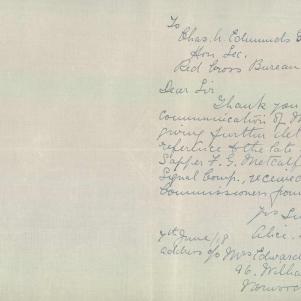 To
Chas. A. Edmunds E
Hon. Sec.
Red Cross Bureau
Dear Sir
Thank you
communication of M
giving further det
reference to the late
Sapper F. G. Metcalf
Signal Comp., received
Commissioners from
Yrs
Alice
7th June/18
address c/o Mrs Edward
96. Willia
Norwoo